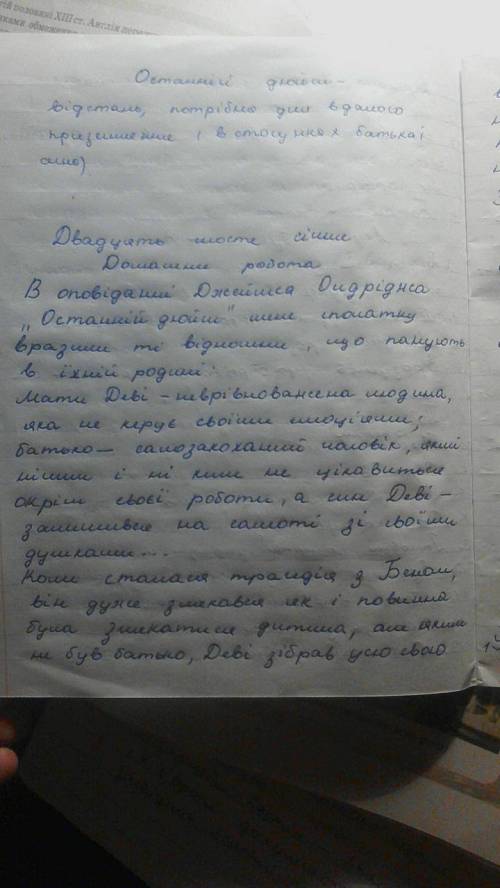 гій половині XIII ст. Англія
Останній дюйм -
відстань, потрібно для вдалого
приземлення і в стосунках батька і
сина)
Двадцять шосте січня
Домашня робота
В оповіданні Джеймса Олдріджа
"Останній дюйм" мене спочатку
вразили ті відносини, що панують
в їхній родині.
Мати Деві - неврівноважена людина,
яка не керує своїми емоціями;
батько - самозакоханий чоловік, який
нічим і ні ким не цікавиться
окрім своєї роботи, а син Деві -
залишився на самоті зі своїми
думками...
Коли сталася трагедія з Беном,
він дуже злякався як і повинна
була злякатися дитина, але яким
не був батько, Деві зібрав усю свою